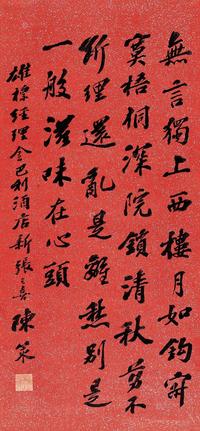 無言獨上西樓月如鈎寂
寞梧桐深院鎖清秋剪不
斷理還亂是離愁別是
一般滋味在心頭
雄標經理全巴利酒店新張之喜
陳策